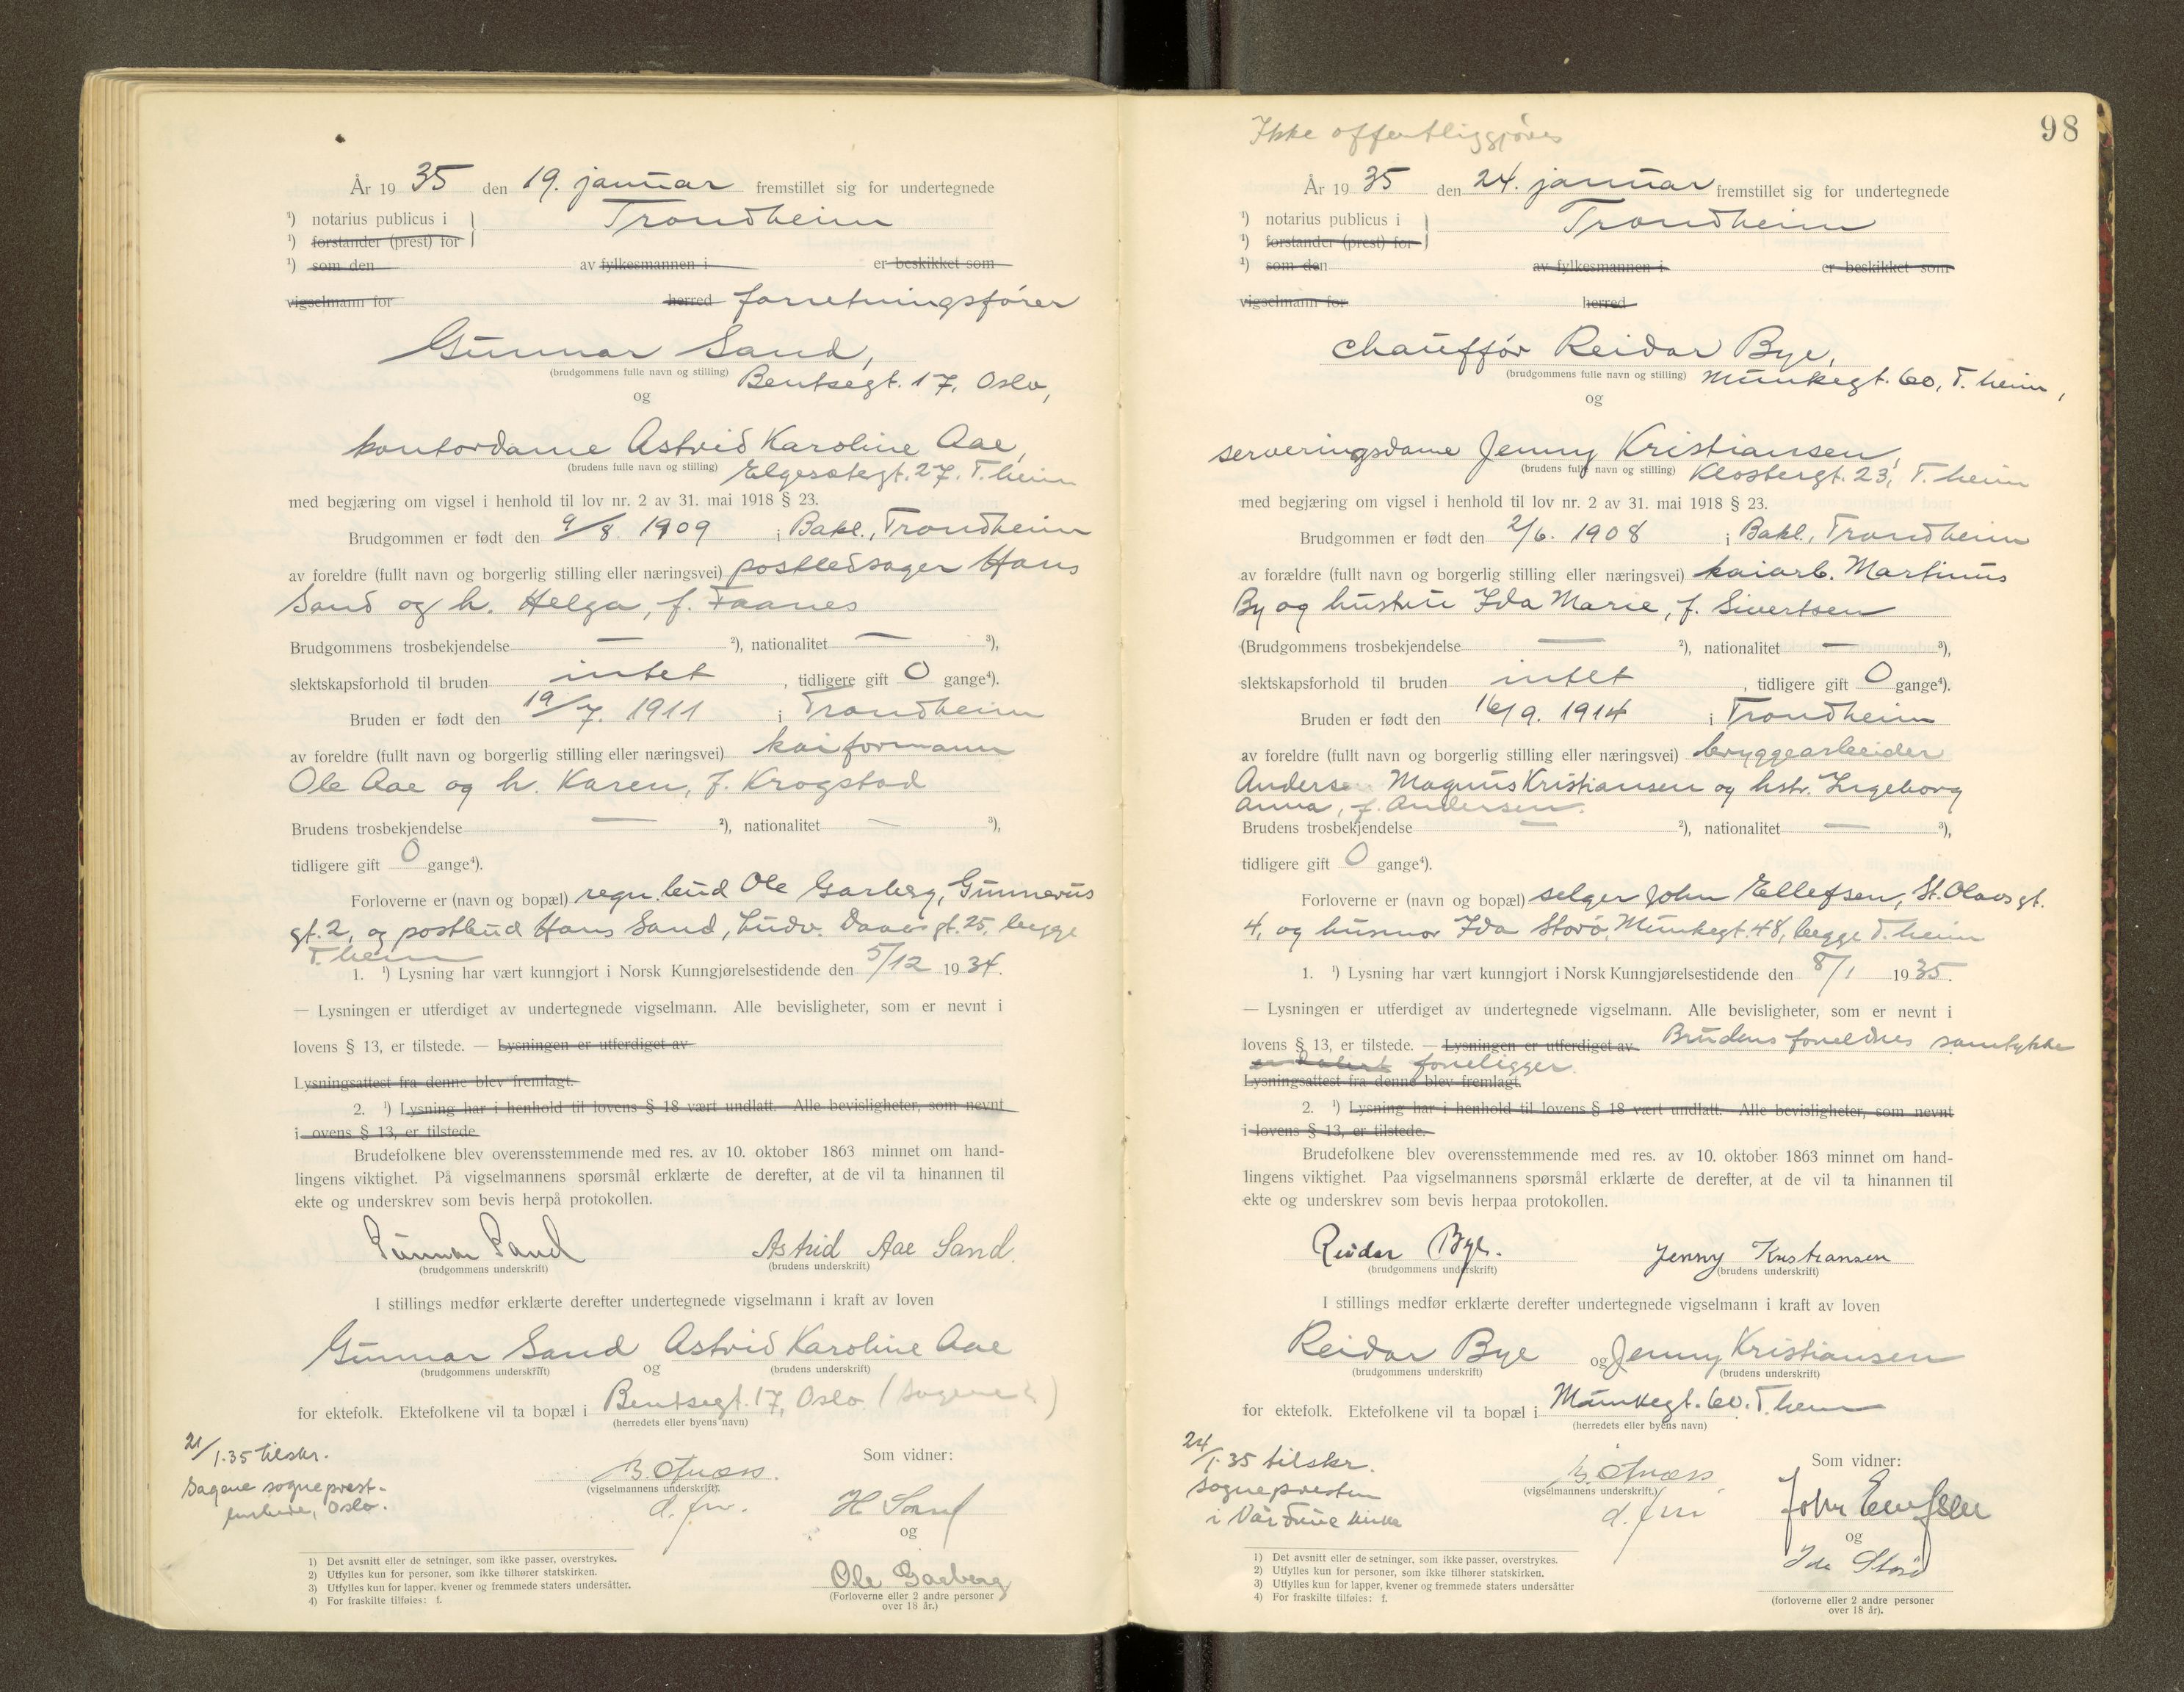 År 1935 den 19. januar fremstillet sig for undertegnede
¹) notarius publicus i Trondheim
¹) forstander (prest) for
¹) som den av fylkesmannen i er beskikket som
vigselmann for herred forretningsfører
Gunnar Sand,
(brudgommens fulle navn og stilling) Bentsegt. 17, Oslo,
og
kontordame Astrid Karoline Aae,
(brudens fulle navn og stilling) Elgesetergt. 27. T.heim
med begjæring om vigsel i henhold til lov nr. 2 av 31. mai 1918 § 23.
Brudgommen er født den 9/8. 1909 i Bakl., Trondheim
av foreldre (fullt navn og borgerlig stilling eller næringsvei) postledsager Hans
Sand og h. Helga, f. Faanes
Brudgommens trosbekjendelse — ²), nationalitet — ³),
slektskapsforhold til bruden intet, tidligere gift 0 gange⁴).
Bruden er født den 19/7. 1911 i Trondheim
av foreldre (fullt navn og borgerlig stilling eller næringsvei) kaiformann
Ole Aae og h. Karen, f. Krogstad
Brudens trosbekjendelse — ²), nationalitet — ³),
tidligere gift 0 gange⁴).
Forloverne er (navn og bopæl) regn.bud Ole Garberg, Gunnerus
gt. 2, og postbud Hans Sand, Ludv. Daaes gt. 25, begge
T.heim
1. ¹) Lysning har vært kunngjort i Norsk Kunngjørelsestidende den 5/12 1934.
— Lysningen er utferdiget av undertegnede vigselmann. Alle bevisligheter, som er nevnt i
lovens § 13, er tilstede. — Lysningen er utferdiget av
Lysningsattest fra denne blev fremlagt.
2. ¹) Lysning har i henhold til lovens § 18 vært undlatt. Alle bevisligheter, som nevnt
i ovens § 13, er tilstede
Brudefolkene blev overensstemmende med res. av 10. oktober 1863 minnet om hand-
lingens viktighet. På vigselmannens spørsmål erklærte de derefter, at de vil ta hinannen til
ekte og underskrev som bevis herpå protokollen.
Gunnar Sand Astrid Aae Sand.
(brudgommens underskrift) (brudens underskrift)
I stillings medfør erklærte derefter undertegnede vigselmann i kraft av loven
Gunnar Sand og Astrid Karoline Aae
(brudgommens underskrift) (brudens underskrift)
for ektefolk. Ektefolkene vil ta bopæl i Bentsegt. 17, Oslo. (Sagene)
(herredets eller byens navn)
21/1.35 tilskr.
Sagene sogneprest-
embede, Oslo.
(vigselmannens underskrift).
Som vidner:
H Sand
og
Ole Garberg
(Forloverne eller 2 andre personer
over 18 år.)
1) Det avsnitt eller de setninger, som ikke passer, overstrykes.
2) Utfylles kun for personer, som ikke tilhører statskirken.
3) Utfylles kun for lapper, kvener og fremmede staters undersåtter.
4) For fraskilte tilføies: f.
98
Ikke offentliggjøres
År 1935 den 24. januar fremstillet sig for undertegnede
¹) notarius publicus i Trondheim
¹) forstander (prest) for
¹) som den av fylkesmannen i er beskikket som
vigselmann for herred
chauffør Reidar Bye,
(brudgommens fulle navn og stilling) Munkegt. 60, T.heim,
og
serveringsdame Jenny Kristiansen,
(brudens fulle navn og stilling) Klostergt. 23, T.heim
med begjæring om vigsel i henhold til lov nr. 2 av 31. mai 1918 § 23.
Brudgommen er født den 2/6. 1908 i Bakl., Trondheim
av forældre (fullt navn og borgerlig stilling eller næringsvei) kaiarb. Martinus
By og hustru Ida Marie, f. Sivertsen
(Brudgommens trosbekjendelse — ²), nationalitet — ³),
slektskapsforhold til bruden intet, tidligere gift 0 gange⁴).
Bruden er født den 16/9. 1914 i Trondheim
av foreldre (fullt navn og borgerlig stilling eller næringsvei) bryggearbeider
Anderse Magnus Kristiansen og hstr. Ingeborg
Anna, f. Andersen.
Brudens trosbekjendelse — ²), nationalitet — ³),
tidligere gift 0 gange⁴).
Forloverne er (navn og bopæl) selger John Ellefsen, St. Olavsgt.
4, og husmor Ida Storø, Munkegt. 48, begge T.heim
1. ¹) Lysning har vært kunngjort i Norsk Kunngjørelsestidende den 8/1 1935.
— Lysningen er utferdiget av undertegnede vigselmann. Alle bevisligheter, som er nevnt i
lovens § 13, er tilstede. — Lysningen er utferdiget av Brudens foreldres samtykke
foreligger.
Lysningsattest fra denne blev fremlagt.
2. ¹) Lysning har i henhold til lovens § 18 vært undlatt. Alle bevisligheter, som nevnt
i lovens § 13, er tilstede.
Brudefolkene blev overensstemmende med res. av 10. oktober 1863 minnet om hand-
lingens viktighet. Paa vigselmannens spørsmål erklærte de derefter, at de vil ta hinannen til
ekte og underskrev som bevis herpaa protokollen.
Reidar Bye. Jenny Kristiansen
(brudgommens underskrift) (brudens underskrift)
I stillings medfør erklærte derefter undertegnede vigselmann i kraft av loven
Reidar Bye og Jenny Kristiansen
(brudgommens underskrift) (brudens underskrift)
for ektefolk. Ektefolkene vil ta bopæl i Munkegt. 60. T.heim
(herredets eller byens navn)
24/1.35 tilskr.
sognepresten
i Vår Frue kirke
(vigselmannens underskrift.)
Som vidner:
John Ellefsen
og
Ida Storø
(forloverne eller 2 andre personer
over 18 år).
1) Det avsnitt eller de setninger, som ikke passer, overstrykes.
2) Utfylles kun for personer, som ikke tilhører statskirken.
3) Utfylles kun for lapper, kvener og fremmede staters undersåtter
4) For fraskilte tilføies: f.